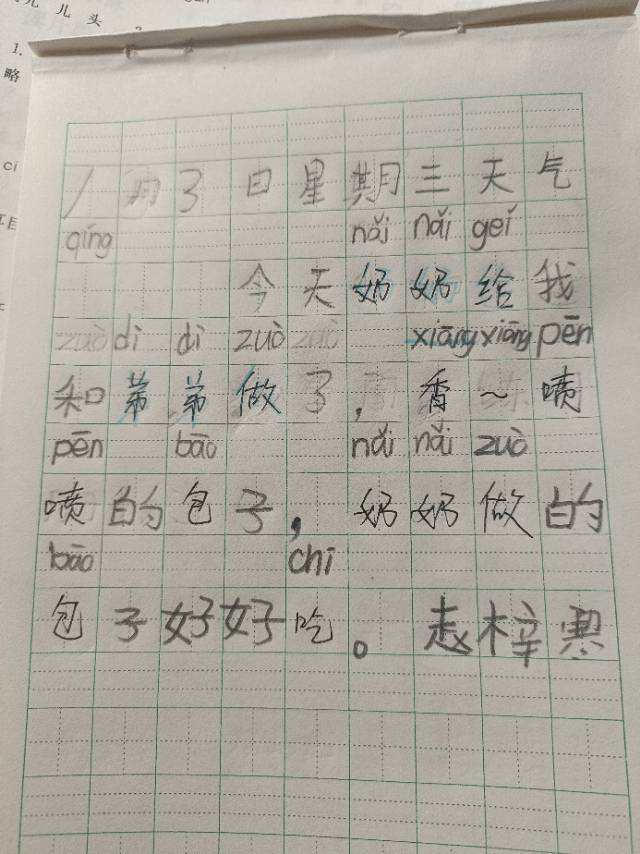 儿 儿 头
1.
略
ci
1月3日星期三天气
qíng nǎi nǎi geǐ
今天奶奶给我
zuò dì dì zuò zuò xiāng xiāng pēn
和弟弟做了，香～喷
pēn bāo nǎi nǎi zuò
喷的包子，奶奶做的
bāo chī
包子好好吃。赵梓